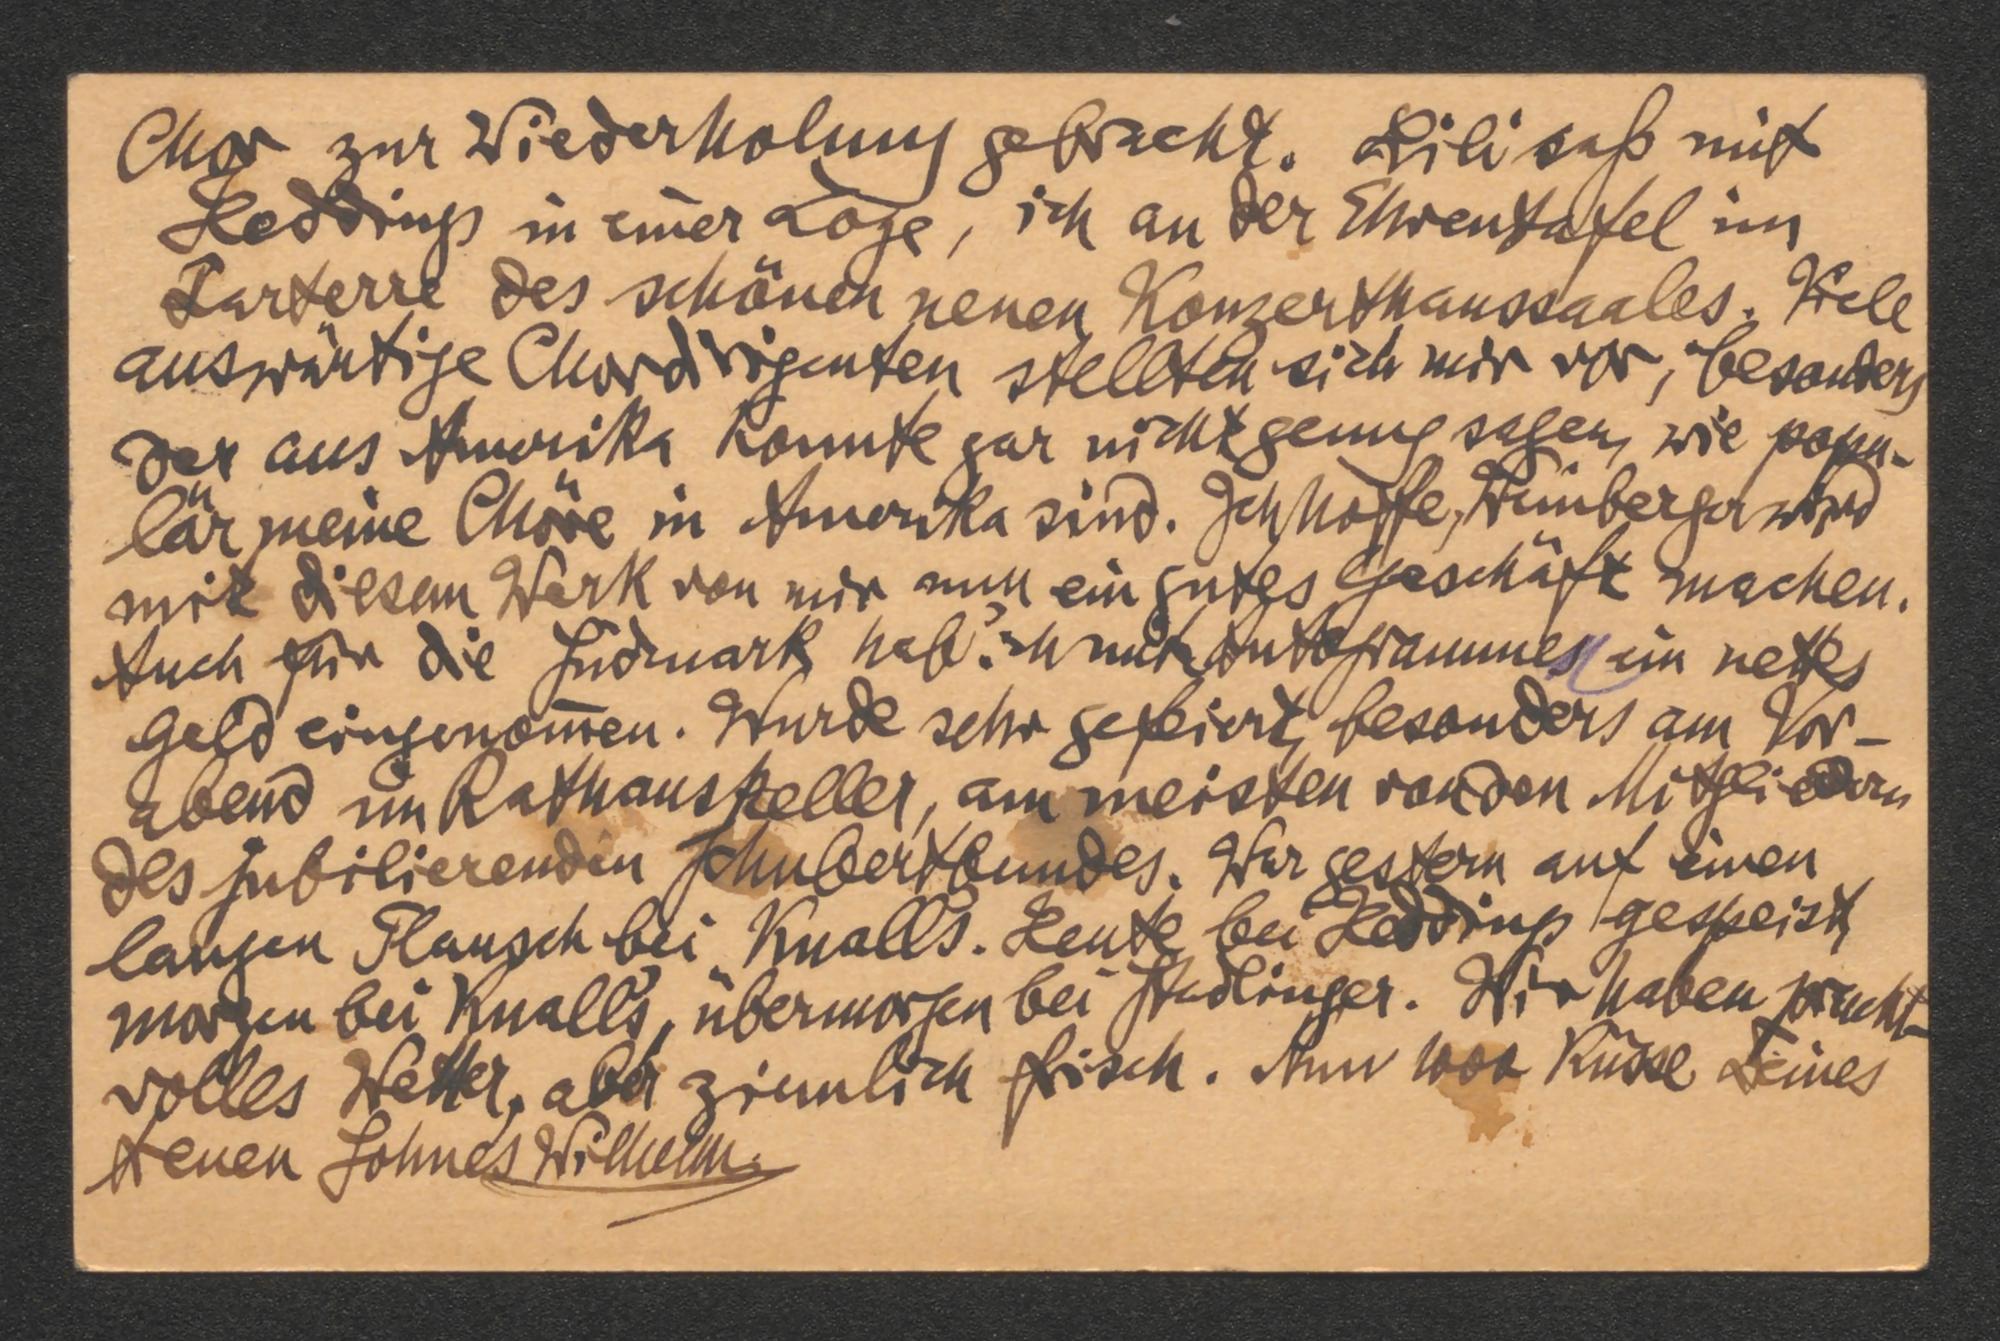 Chor zur Wiederholung gebracht. Lili saß mit
Heddings in einer Loge, ich an der Ehrentafel im
Parterre des schönen neuen Konzerthaussaales. Viele
auswärtige Chordirigenten stellten sich mir vor, besonders
der aus Amerika konnte gar nicht genug sagen, wie popu-
lär meine Chöre in Amerika sind. Ich hoffe, Weinberger wird
mit diesem Werk von mir nun ein gutes Geschäft machen.
Auch für die Südmark hab' ich mit Autogrammen ein nettes
Geld eingenom̅en. Wurde sehr gefeiert, besonders am Vor-
abend im Rathauskeller, am meisten von den Mitgliedern
des jubilierenden Schubertbundes. War gestern auf einen
langen Plausch bei Knalls. Heute bei Heddings gespeist,
morgen bei Knalls, übermorgen bei Stadlinger. Wir haben pracht-
volles Wetter, aber ziemlich frisch. Nun 1000 Küsse Deines
treuen Sohnes Wilhelm.